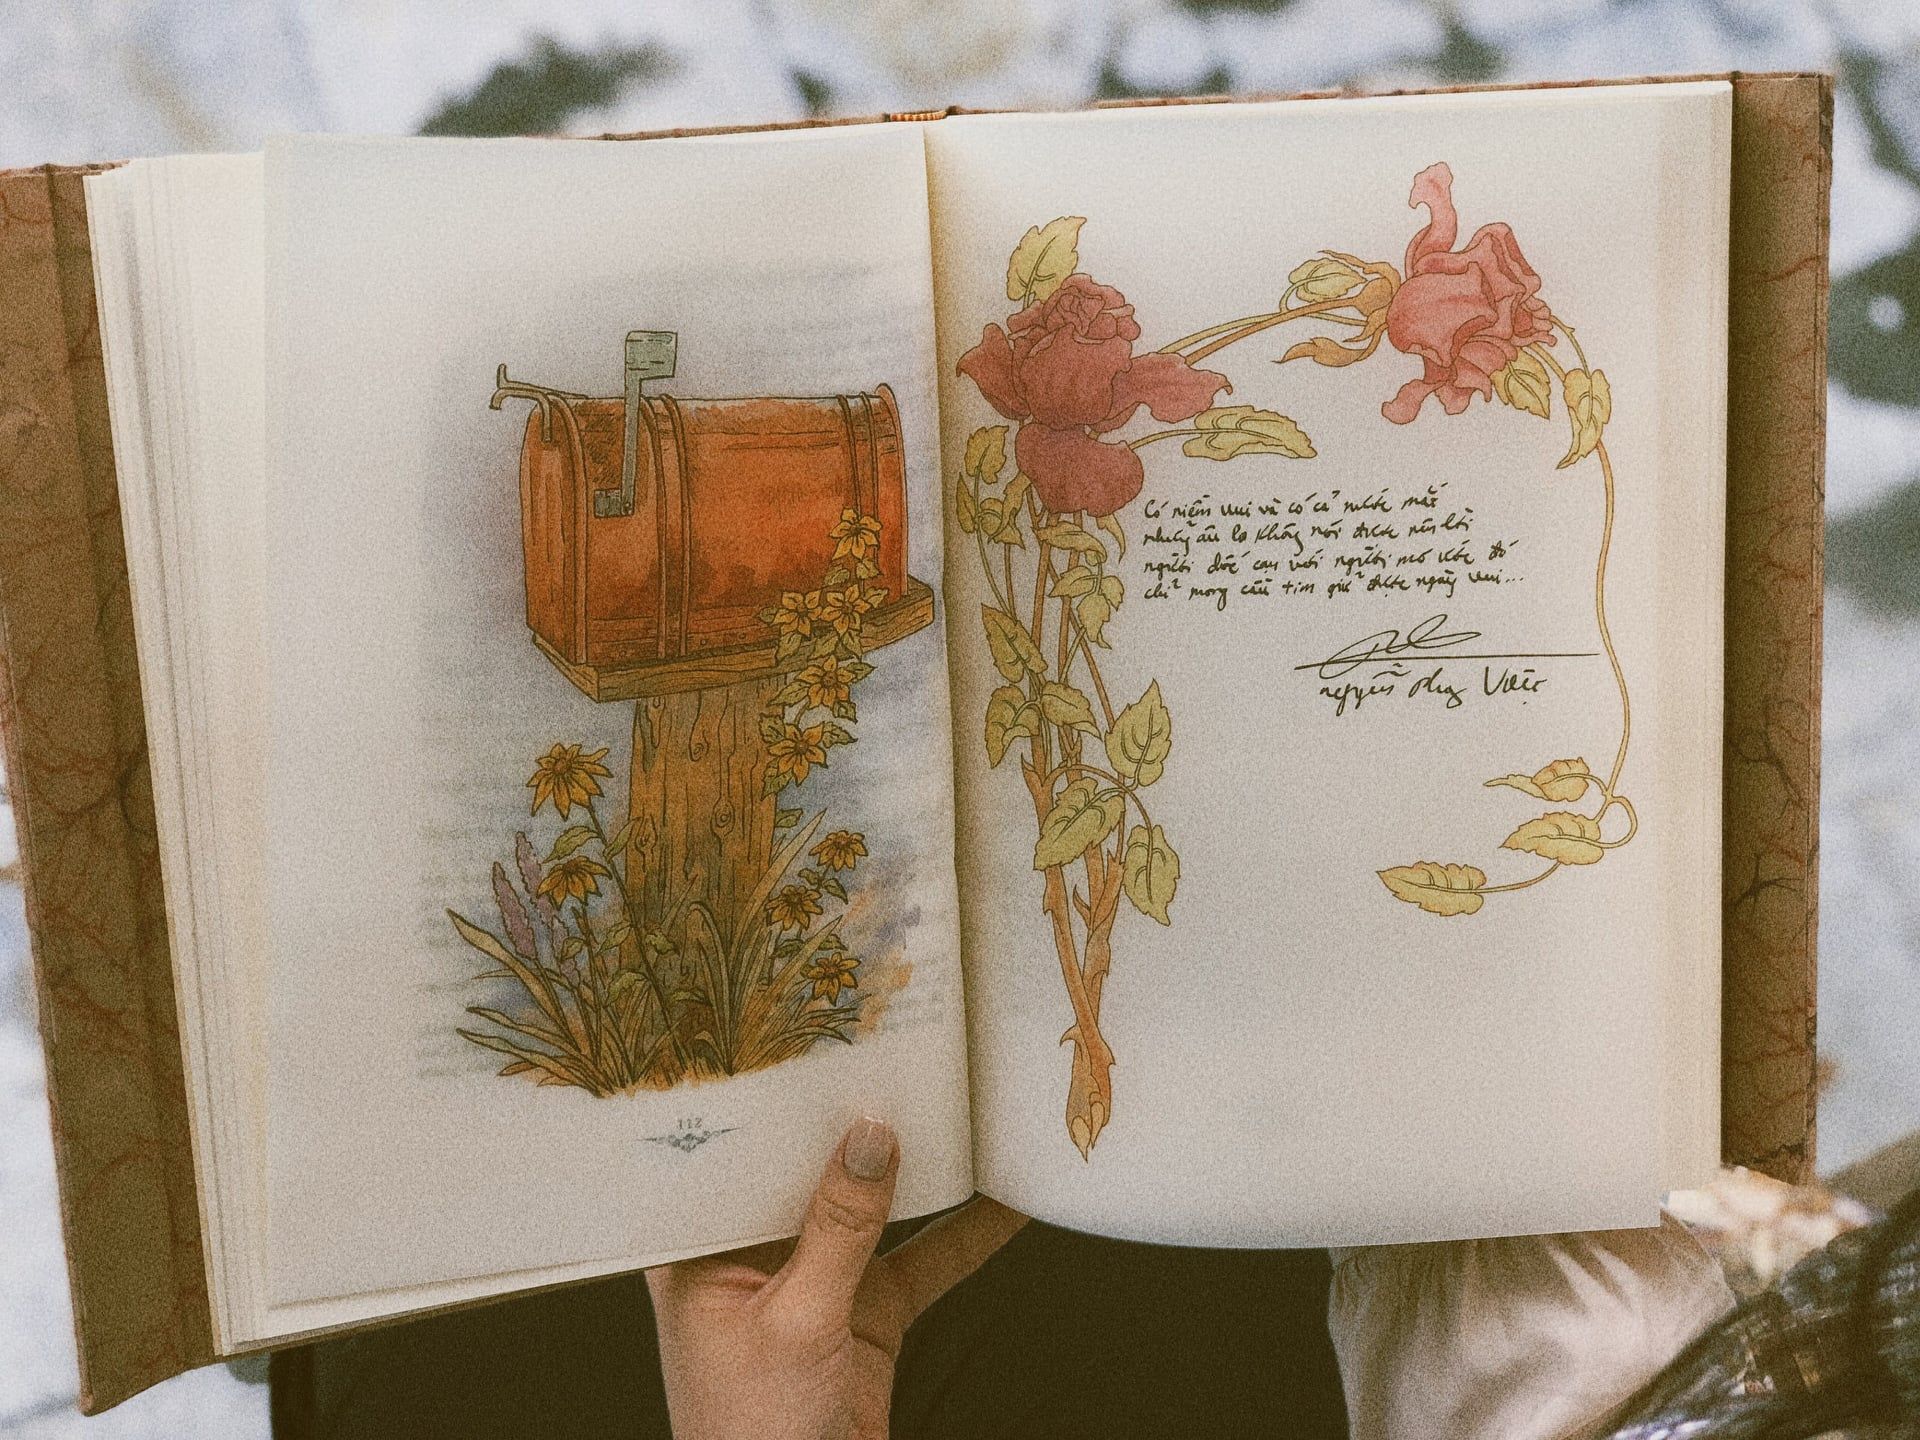 112
Có niềm vui và có cả nước mắt
những âu lo không nói được nên lời
người đốc cạn với người mơ ước đó
chỉ mong cầu tìm giữ được ngày vui...
nguyễn phong Việt